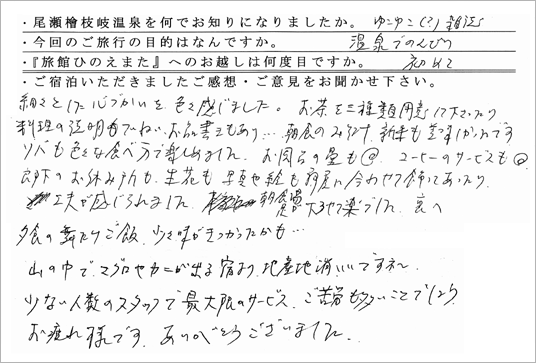 ・尾瀬檜枝岐温泉を何でお知りになりましたか。 ゆこゆこ(?)雑誌
・今回のご旅行の目的はなんですか。 温泉でのんびり
・『旅館ひのえまた』へのお越しは何度目ですか。 初めて
・ご宿泊いただきましたご感想・ご意見をお聞かせ下さい。
細々とした心づかいを色々感じました。お茶を二種類用意して下さったり
料理の説明もていねい、お品書きもあり… 朝食のみそ汁、新香も美味しかったです
ソバも色々な食べ方で楽しめました。お風呂の畳も◎ コーヒーのサービスも◎
廊下のお休み所も、生花も写真や絵も病房に合わせて飾ってあったり
工夫が感じられました
夕食の舞たけご飯、少々味がきつかったかも…
山の中でマグロやカニが出る宿より、地産地消いいですネ〜
少ない人数のスタッフで最大限のサービス、ご苦労も多いことでしょう
お疲れ様です。ありがとうございました。